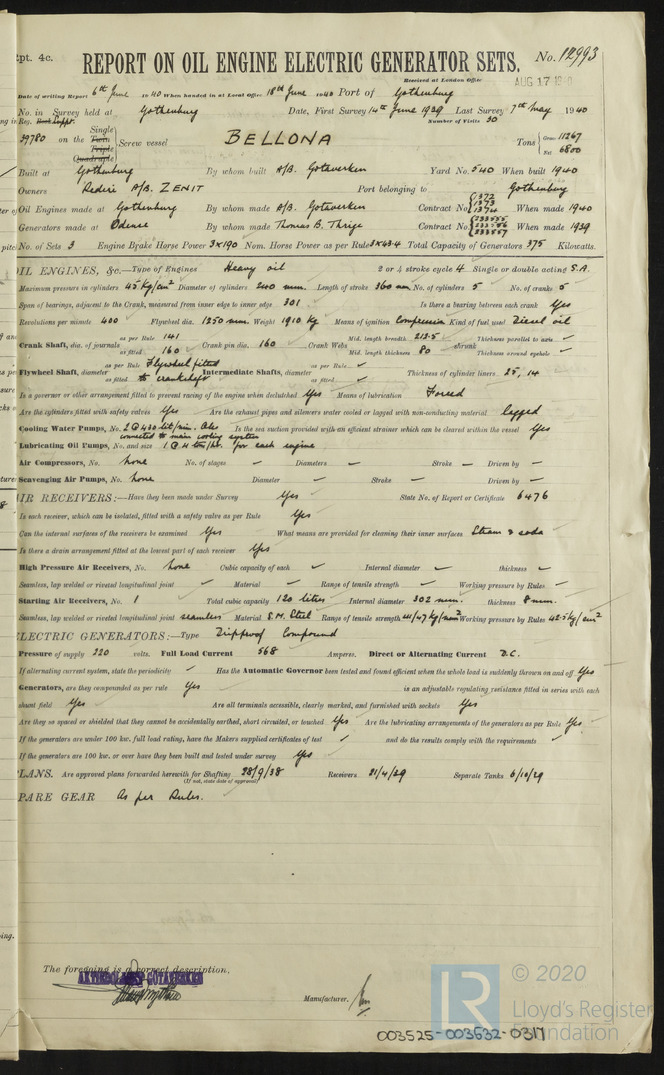 Rpt. 4c.
REPORT ON OIL ENGINE ELECTRIC GENERATOR SETS.
No. 12993
Received at London Office
AUG 17
Date of writing Report 6th June 1940 When handed in at Local Office 18th June 1940 Port of Gothenburg
No. in Survey held at Gothenburg Date, First Survey 14th June 1939 Last Survey 7th May 1940
Reg. Number of Visits 30
39780 on the Single Twin Triple Quadruple Screw vessel BELLONA Tons Gross 11267 Net 6800
Built at Gothenburg By whom built A/B. Götaverken Yard No. 540 When built 1940
Owners Rederi A/B. ZENIT Port belonging to Gothenburg
Oil Engines made at Gothenburg By whom made A/B. Götaverken Contract No. 1372 1373 1374 When made 1940
Generators made at Odense By whom made Thomas B. Thrige Contract No. When made 1939
No. of Sets 3 Engine Brake Horse Power 3x190 Nom. Horse Power as per Rule 3x43.4 Total Capacity of Generators 375 Kilowatts.
OIL ENGINES, &c.—Type of Engines Heavy oil 2 or 4 stroke cycle 4 Single or double acting S.A.
Maximum pressure in cylinders 45 kg/cm² Diameter of cylinders 240 mm. Length of stroke 360 mm No. of cylinders 5 No. of cranks 5
Span of bearings, adjacent to the Crank, measured from inner edge to inner edge 301 Is there a bearing between each crank Yes
Revolutions per minute 400 Flywheel dia. 1250 mm. Weight 1910 kg Means of ignition Compression Kind of fuel used Diesel oil
Crank Shaft, dia. of journals as per Rule 141 as fitted 160 Crank pin dia. 160 Crank Webs Mid. length breadth 212.5 Mid. length thickness 80 shrunk Thickness parallel to axis – Thickness around eyehole –
Flywheel Shaft, diameter as per Rule Flywheel fitted as fitted to crankshaft Intermediate Shafts, diameter as per Rule – as fitted – Thickness of cylinder liners 25, 14
Is a governor or other arrangement fitted to prevent racing of the engine when declutched Yes Means of lubrication Forced
Are the cylinders fitted with safety valves Yes Are the exhaust pipes and silencers water cooled or lagged with non-conducting material lagged
Cooling Water Pumps, No. 2 @ 430 lit/min. Also connected to main cooling system Is the sea suction provided with an efficient strainer which can be cleared within the vessel Yes
Lubricating Oil Pumps, No. and size 1 @ 4 ton/hr. for each engine
Air Compressors, No. none No. of stages – Diameters – Stroke – Driven by –
Scavenging Air Pumps, No. none Diameter – Stroke – Driven by –
AIR RECEIVERS:—Have they been made under Survey Yes State No. of Report or Certificate 6476
Is each receiver, which can be isolated, fitted with a safety valve as per Rule Yes
Can the internal surfaces of the receivers be examined Yes What means are provided for cleaning their inner surfaces Steam & soda
Is there a drain arrangement fitted at the lowest part of each receiver Yes
High Pressure Air Receivers, No. none Cubic capacity of each – Internal diameter – thickness –
Seamless, lap welded or riveted longitudinal joint – Material – Range of tensile strength – Working pressure by Rules –
Starting Air Receivers, No. 1 Total cubic capacity 120 litres Internal diameter 302 mm. thickness 8 mm.
Seamless, lap welded or riveted longitudinal joint seamless Material S.M. Steel Range of tensile strength 41/47 kg/mm² Working pressure by Rules 42.5 kg/cm²
ELECTRIC GENERATORS:—Type Dripproof Compound
Pressure of supply 220 volts. Full Load Current 568 Amperes. Direct or Alternating Current D.C.
If alternating current system, state the periodicity – Has the Automatic Governor been tested and found efficient when the whole load is suddenly thrown on and off Yes
Generators, are they compounded as per rule Yes is an adjustable regulating resistance fitted in series with each
shunt field Yes Are all terminals accessible, clearly marked, and furnished with sockets Yes
Are they so spaced or shielded that they cannot be accidentally earthed, short circuited, or touched Yes Are the lubricating arrangements of the generators as per Rule Yes
If the generators are under 100 kw. full load rating, have the Makers supplied certificates of test – and do the results comply with the requirements –
If the generators are 100 kw. or over have they been built and tested under survey Yes
PLANS. Are approved plans forwarded herewith for Shafting 28/9/38 Receivers 21/4/29 Separate Tanks 6/10/29
(If not, state date of approval)
SPARE GEAR As per Rules.
The foregoing is a correct description.
AKTIEBOLAGET GÖTAVERKEN
Manufacturer.
© 2020
Lloyd's Register
Foundation
003525-003632-0317